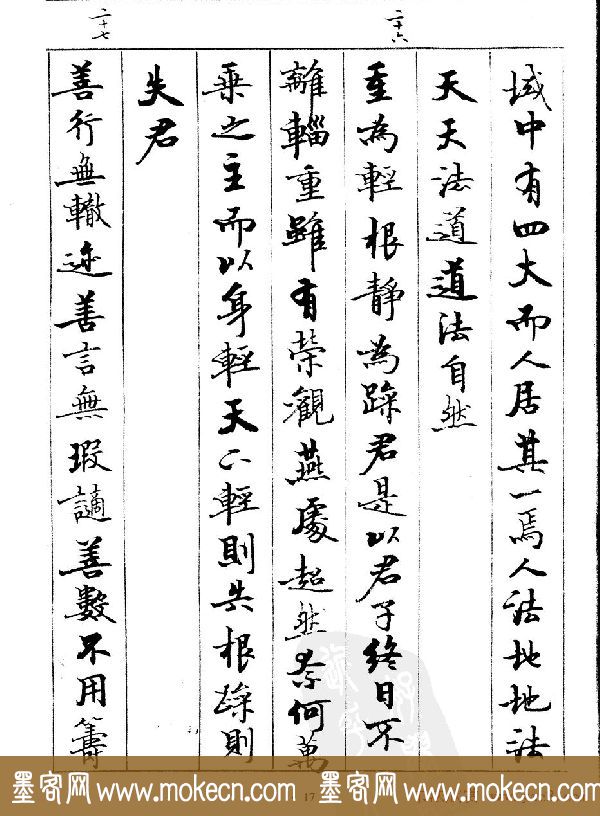 二十六
域中有四大而人居其一焉人法地地法
天天法道道法自然
重為輕根靜為躁君是以君子終日不
離輜重雖有榮觀燕處超然奈何萬
乗之主而以身輕天下輕則失根躁則
失君
二十七
善行無轍迹善言無瑕謫善數不用籌
墨客网 www.mokecn.com 墨客网 www.mokecn.com
17